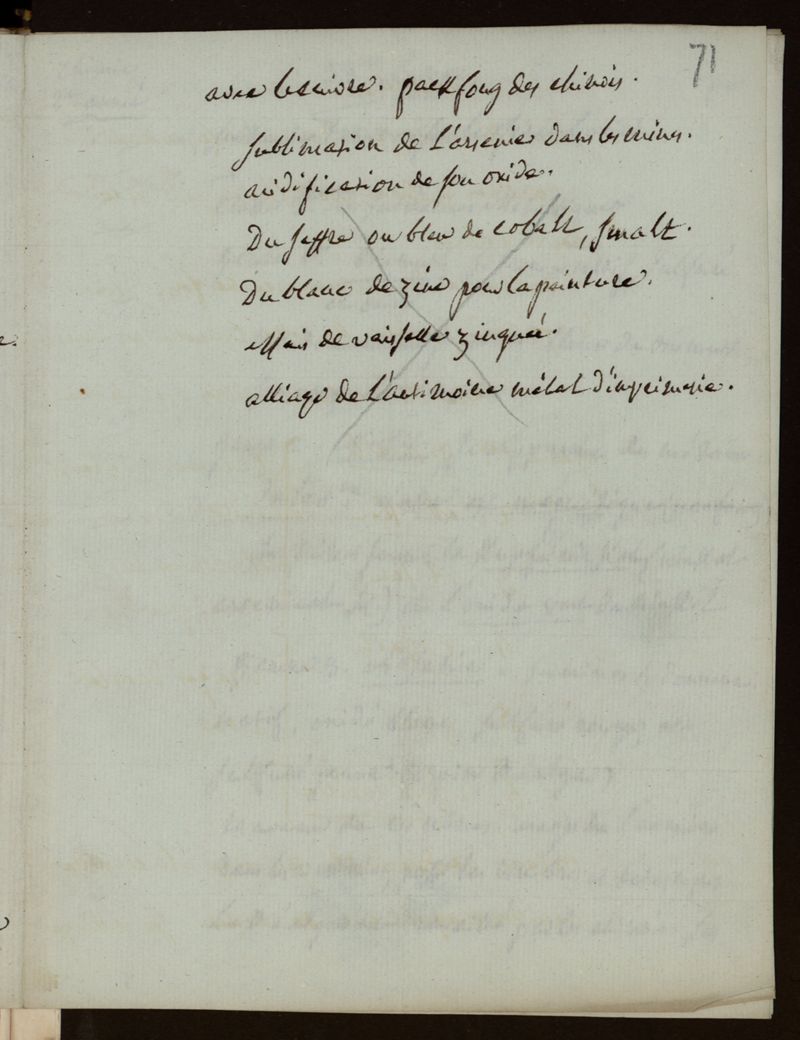 71
avec le cuivre. packfong des chinois.
sublimation de l'arsenic dans les mines.
acidification de son oxide.
Du saffre ou bleu de cobalt, smalt.
Du blanc de zinc pour la peinture.
essais de vaisselle zinquée.
alliage de l'antimoine métal d'imprimerie.